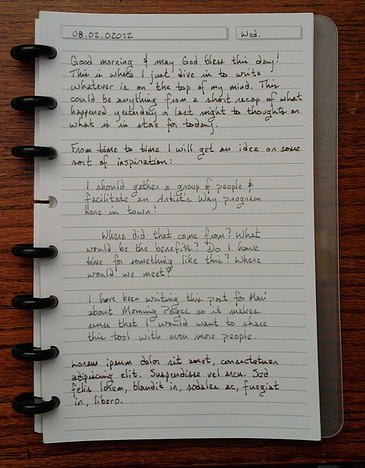 08.02.02012 Wed.
Good morning & may God bless this day!
This is where I just dive in to write
whatever is on the top of my mind. This
could be anything from a short recap of what
happened yesterday & last night to thoughts on
what is in store for today.
From time to time I will get an idea or some
sort of inspiration:
I should gather a group of people &
facilitate an Artist's Way program
here in town!
Where did that come from? What
would be the benefits? Do I have
time for something like this? Where
would we meet?
I have been writing this post for Mari
about Morning Pages so it makes
sense that I would want to share
this tool with even more people.
Lorem ipsum dolor sit amet, consectetuer
adipiscing elit. Suspendisse vel arcu. Sed
felis lorem, blandit in, sodales ac, fuegiat
in, libero.